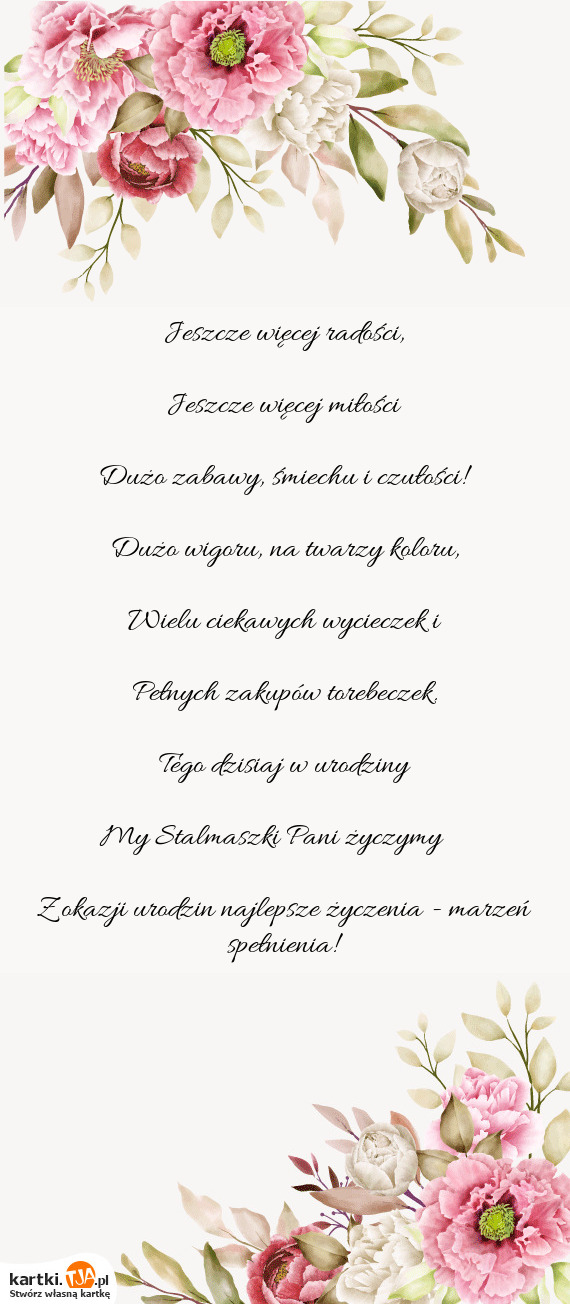 Jeszcze więcej radości,
Jeszcze więcej miłości
Dużo zabawy, śmiechu i czułości!
Dużo wigoru, na twarzy koloru,
Wielu ciekawych wycieczek i
Pełnych zakupów torebeczek.
Tego dzisiaj w urodziny
My Stalmaszki Pani życzymy
Z okazji urodzin najlepsze życzenia - marzeń
spełnienia!
kartki.TJA.pl
Stwórz własną kartkę